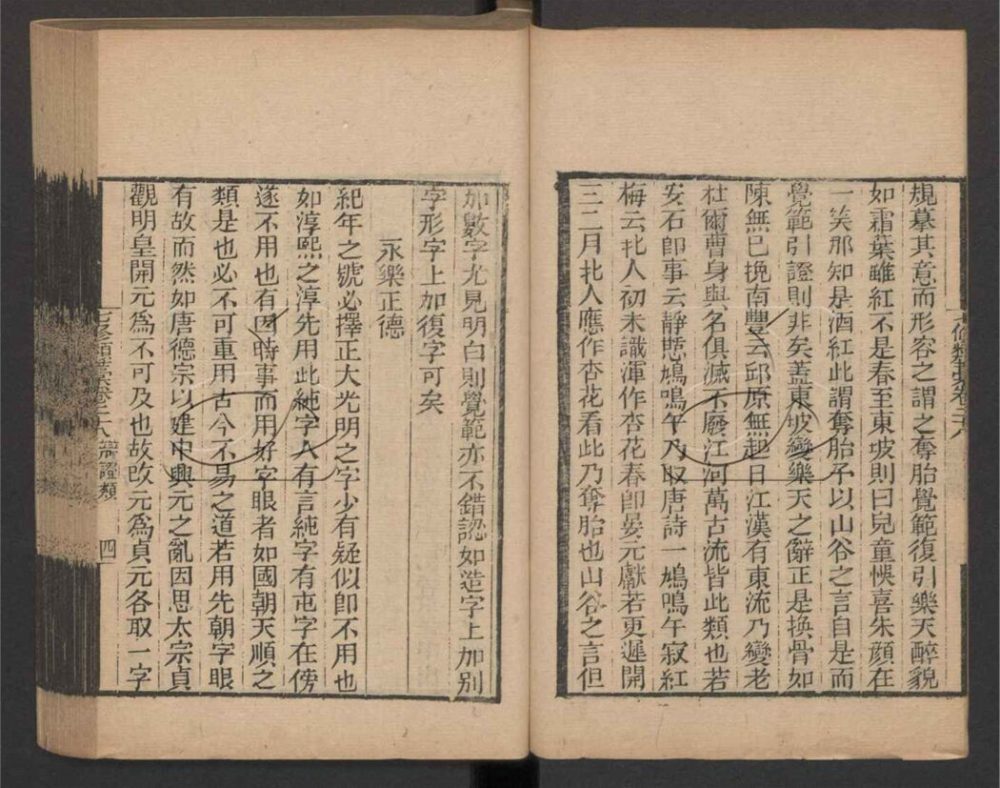 規摹其意而形容之謂之奪胎覺範復引樂天醉貌
如霜葉雖紅不是春至東坡則曰兒童悞喜朱顔在
一笑那知是酒紅此謂奪胎予以山谷之言自是而
覺範引證則非矣蓋東坡變樂天之辭正是換骨如
陳無已挽南豐云邱原無起日江漢有東流乃變老
杜爾曹身與名俱滅不廢江河萬古流皆此類也若
安石卽事云靜憩鳩鳴午乃取唐詩一鳩鳴午寂紅
梅云北人初未識渾作杏花春卽晏元獻若更遲開
三二月北人應作杏花看此乃奪胎也山谷之言但
加數字尤見明白則覺範亦不錯認如造字上加別
字形字上加復字可矣
永樂正德
紀年之號必擇正大光明之字少有疑似卽不用也
如淳熙之淳先用此純字人有言純字有屯字在傍
遂不用也有因時事而用好字眼者如國朝天順之
類是也必不可重用古今不易之道若用先朝字眼
有故而然如唐德宗以建中興元之亂因思太宗貞
觀明皇開元爲不可及也故改元爲貞元各取一字
七修類藁卷二十八 辯證類 四